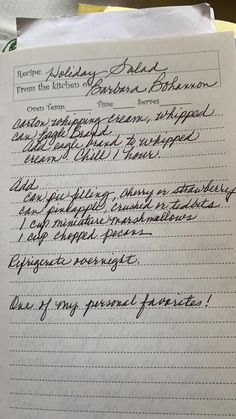 Recipe: Holiday Salad
From the kitchen of Barbara Bohannon
Oven Temp. Time Serves
carton whipping cream, whipped
can Eagle Brand
Add eagle brand to whipped
cream. Chill 1 hour.
Add
can pie filling, cherry or strawberry
can pineapple, crushed or tidbits
1 cup miniature marshmallows
1 cup chopped pecans
Refrigerate overnight.
One of my personal favorites!